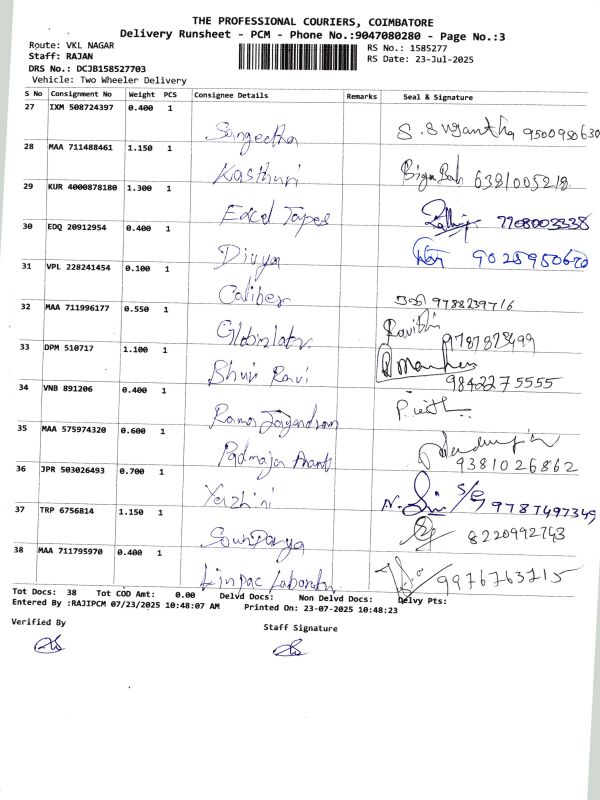 THE PROFESSIONAL COURIERS, COIMBATORE
Delivery Runsheet - PCM - Phone No.:9047080280 - Page No.:3
Route: VKL NAGAR
Staff: RAJAN
DRS No.: DCJB158527703
Vehicle: Two Wheeler Delivery
RS No.: 1585277
RS Date: 23-Jul-2025
S No Consignment No Weight PCS Consignee Details Remarks Seal & Signature
27 IXM 508724397 0.400 1
Sangeetha S. Sugantha 9500950630
28 MAA 711488461 1.150 1
Kasthuri 6381005218
29 KUR 4000878180 1.300 1
Edcd Tapes 7708003338
30 EDQ 20912954 0.400 1
Divya 9025950670
31 VPL 228241454 0.100 1
Caliber 9788239716
32 MAA 711996177 0.550 1
9787873499
33 DPM 510717 1.100 1
Bhuvi Ravi 9842275555
34 VNB 891206 0.400 1
35 MAA 575974320 0.600 1
Padmaja Anant 9381026862
36 JPR 503026493 0.700 1
Yazhini 9787497349
37 TRP 6756814 1.150 1
Soundarya 8220992743
38 MAA 711795970 0.400 1
Linpac 9976763715
Tot Docs: 38 Tot COD Amt: 0.00 Delvd Docs: Non Delvd Docs: Delvy Pts:
Entered By :RAJIPCM 07/23/2025 10:48:07 AM Printed On: 23-07-2025 10:48:23
Verified By
Staff Signature